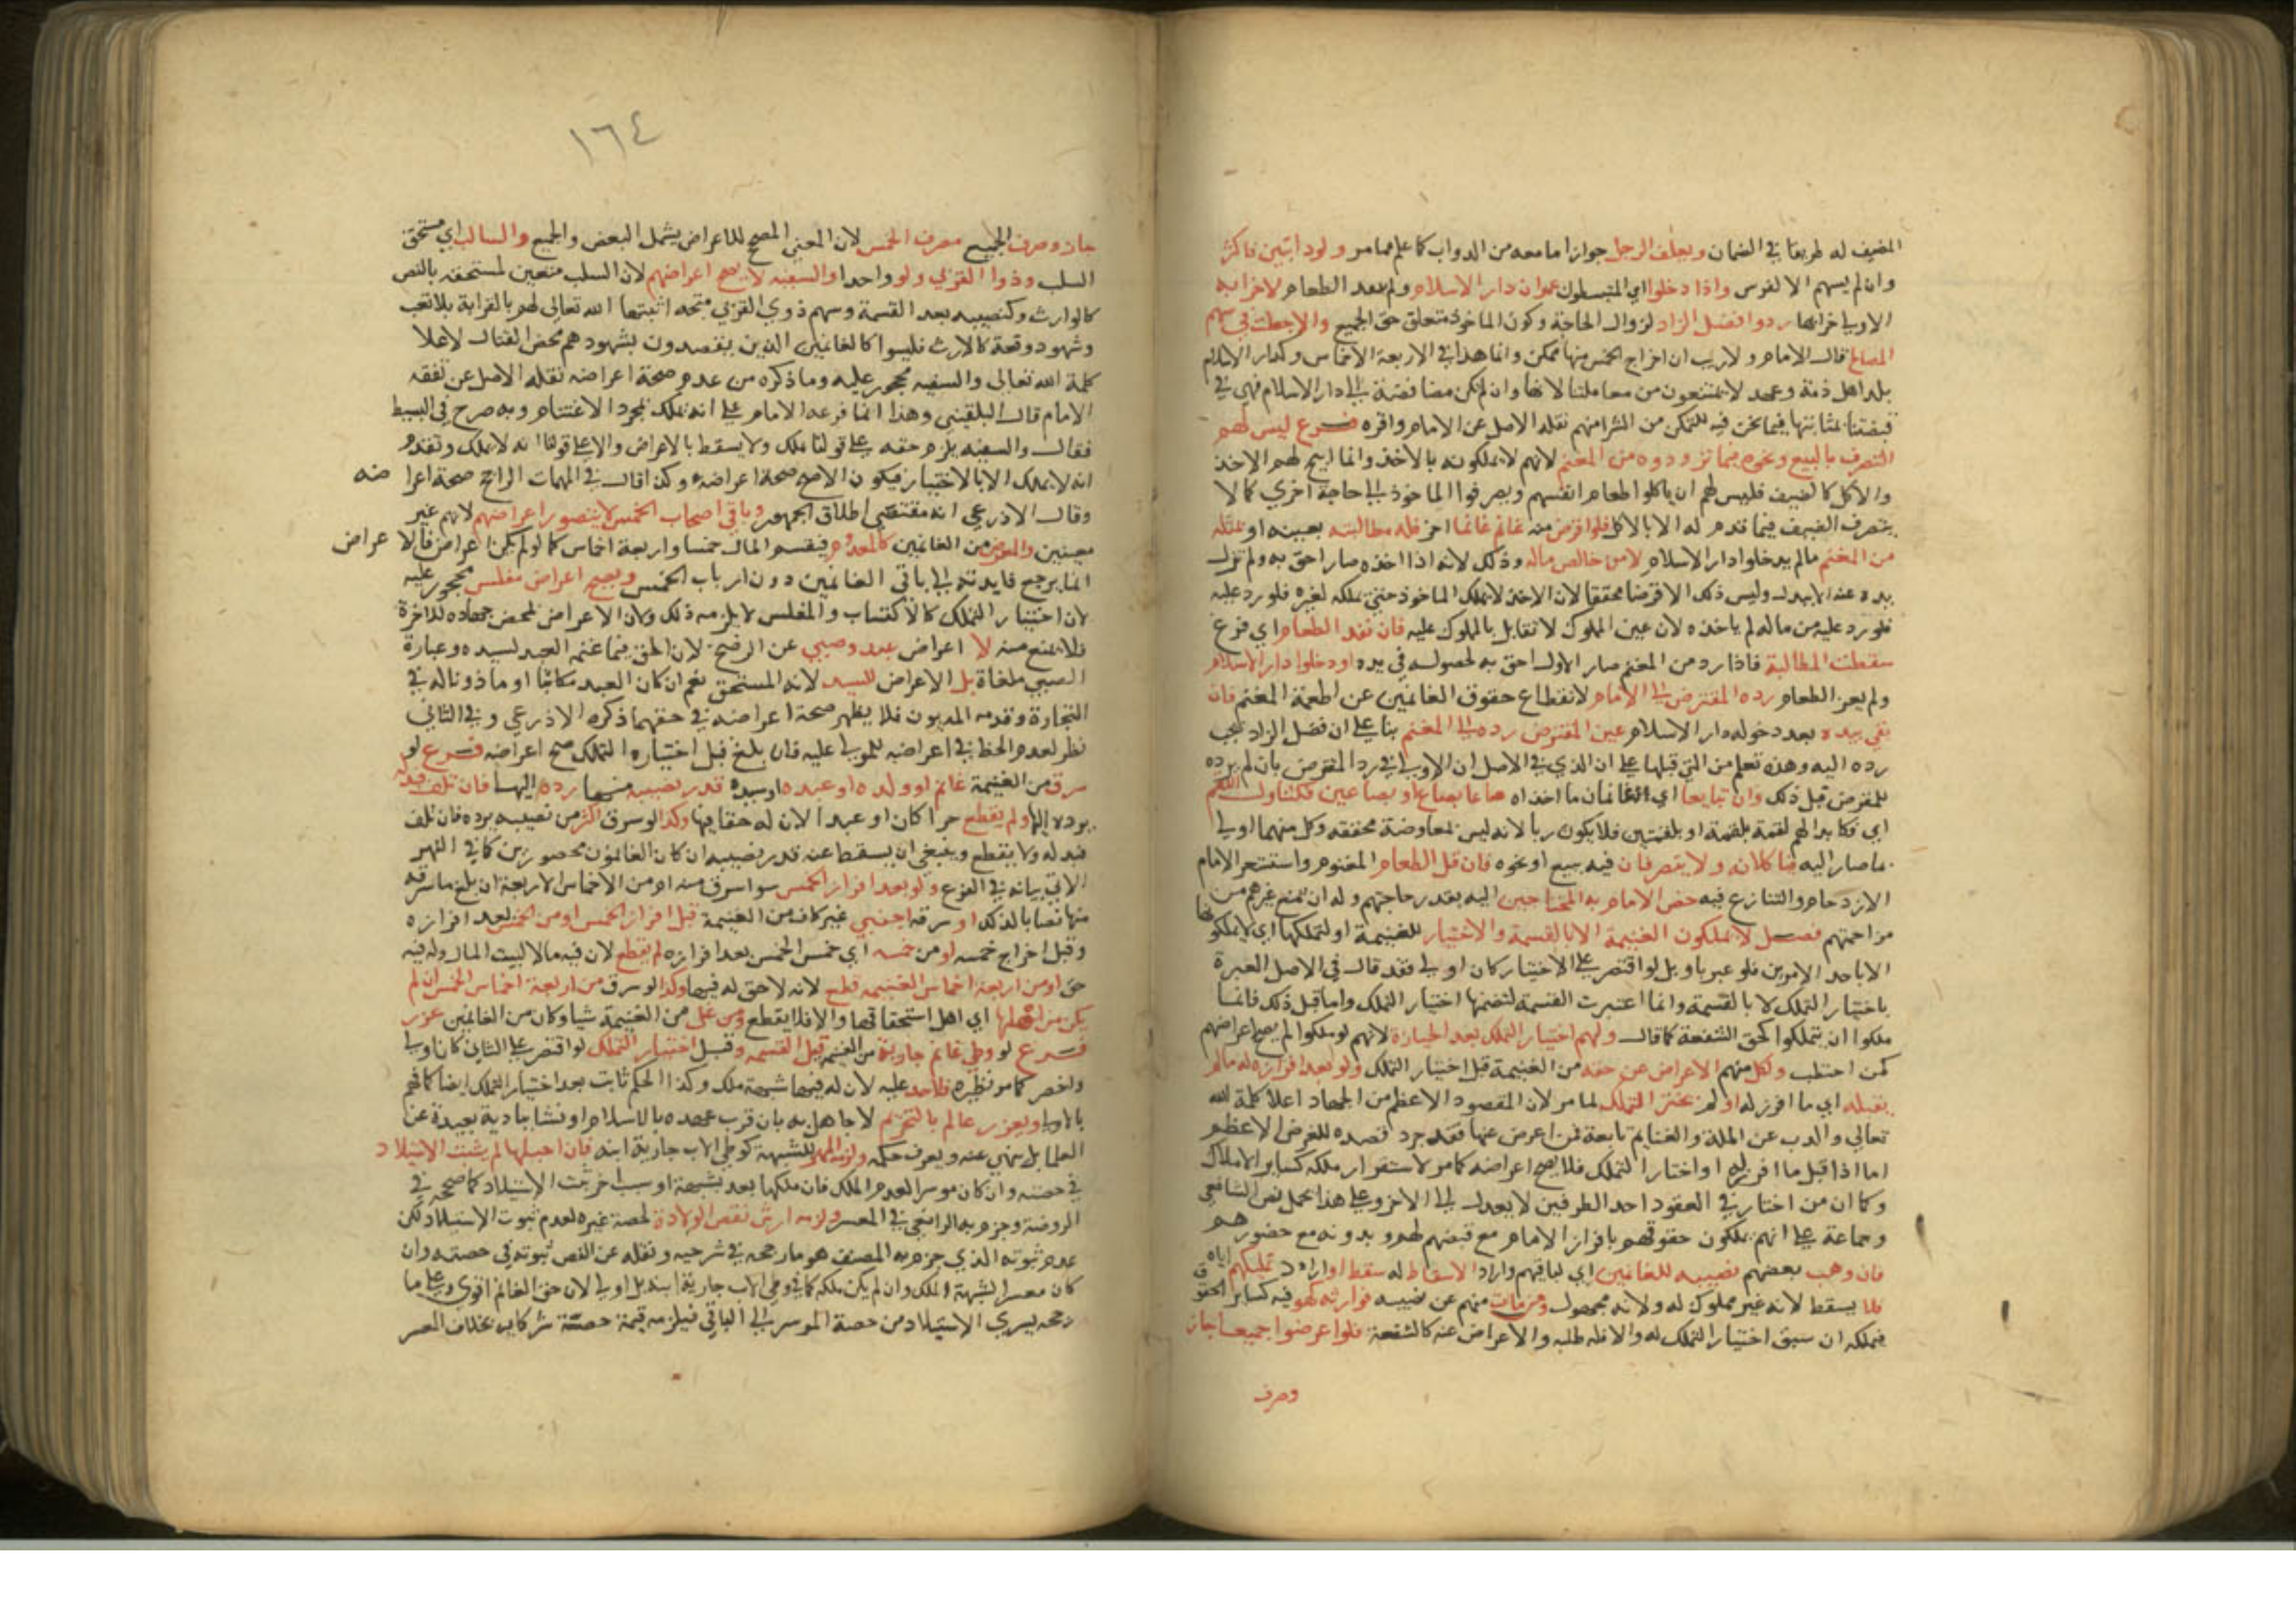 المضيف له طريقا في الضمان ويعلف الرجل جوازا ما معه من الدواب كما علم مما مر ولو دابتين فاكثر
وان لم يسهم الا لفرس واذا دخلوا اي المتبسطون عمران دار الاسلام ولم يعد الطعام لاخرابه
الاولى خرابها ردوا فضل الزاد لزوال الحاجة وكون الماخوذ متعلق حق الجميع والا جعلت في سهم
المصالح قال الامام ولا ريب ان اخراج الخمس منها ممكن وانما هذا في الاربعة الاخماس وكدار الاسلام
بلد اهل ذمة وعهد لا يمتنعون من معاملتنا لانها وان لم تكن مضافة الى دار الاسلام فهي في
قبضتنا بمثابتها فيما نحن فيه للتمكن من الشرا منهم نقله الاصل عن الامام واقره فرع ليس لهم
التصرف بالبيع ونحوه فيما تزودوه من المغنم لانهم لا يملكونه بالاخذ وانما ابيح لهم الاخذ
والاكل كالضيف فليس لهم ان ياكلوا طعام انفسهم ويصرفوا الماخوذ الى حاجة اخرى كما لا
يتصرف الضيف فيما قدم له الا بالاكل فلو اقرض منه غانم غانما اخر فله مطالبته بعينه او بمثله
من المغنم ما لم يدخلوا دار الاسلام لا من خالص ماله وذلك لانه اذا اخذه صار احق به ولم تزل
يده عنه الا ببدل وليس ذلك الا قرضا محققا لان الاخذ لا يملك الماخوذ حتى يملكه لغيره فلو رد عليه
فلو رد عليه من ماله لم ياخذه لان عين المملوك لا تقابل بالمملوك عليه فان نفد الطعام اي فرغ
سقطت المطالبة فاذا رد من المغنم صار الاول احق به لحصوله في يده او دخلوا دار الاسلام
ولم يعز الطعام رده المقترض الى الامام لانقطاع حقوق الغانمين عن اطعمة المغنم فان
بقي بيده بعد دخوله دار الاسلام عين المقترض رده الى المغنم بنا على ان فضل الزاد يجب
رده اليه وهذه تعلم من التي قبلها على ان الذي في الاصل ان الاولى في رد المقرض بان لم يرده
للمقرض قبل ذلك وان تبايعا اي الغانمان ما اخذاه صاعا بصاع او بصاعين فكتناول اللقم
اي فكابدالهم لقمة بلقمة او بلقمتين فلا يكون ربا لانه ليس لمعاوضة محققة وكل منهما اولى
بما صار اليه فياكلانه ولا يتصرفان فيه ببيع او نحوه فان قل الطعام المغنوم واستشعر الامام
الازدحام والتنازع فيه خص الامام به المحتاجين اليه بقدر حاجتهم وله ان يمنع غيرهم من
مزاحمتهم فصل لا يملكون الغنيمة الا بالقسمة والاختيار للغنيمة او لتملكها اي لا يملكونها
الا باحد الامرين فلو عبر باو بل لو اقتصر على الاختيار كان اولى فقد قال في الاصل العبرة
باختيار التملك لا بالقسمة وانما اعتبرت القسمة لتضمنها اختيار التملك واما قبل ذلك فانما
ملكوا ان يتملكوا كحق الشفعة كما قال ولهم اختيار التملك بعد الحيازة لانهم لو ملكوا لم يصح اعراضهم
كمن احتطب ولكل منهم الاعراض عن حقه من الغنيمة قبل اختيار التملك ولو بعد افرازه له ما لم
يقبله اي ما افرز له او لم يختر التملك لما مر لان المقصود الاعظم من الجهاد اعلا كلمة الله
تعالى والذب عن الملة والغنايم تابعة فمن اعرض عنها فقد جرد قصده للغرض الاعظم
اما اذا قبل ما افرز له او اختار التملك فلا يصح اعراضه كما مر لاستقرار ملكه كسائر الاملاك
وكما ان من اختار في العقود احد الطرفين لا يعدل الى الاخر وعلى هذا يحمل نص الشافعي
وجماعة على انهم يملكون حقوقهم بافراز الامام مع قبضهم لها وبدونه مع حضورهم
فان وهب بعضهم نصيبه للغانمين اي لباقيهم واراد الاسقاط له سقط او اراد تمليكهم اياه
فلا يسقط لانه غير مملوك له ولانه مجهول ومن مات منهم عن نصيبه فوارثه كهو فيه كسائر الحقوق
فيملكه ان سبق اختيار التملك له والا فله طلبه والاعراض عنه كالشفعة فلو اعرضوا جميعا جاز
وصرف
١٦٤
جاز وصرف الجميع مصرف الخمس لان المعنى المصحح للاعراض يشمل البعض والجميع والسالب اي مستحق
السلب وذوا القربى ولو واحدا والسفيه لا يصح اعراضهم لان السلب متعين لمستحقه بالنص
كالوارث وكنصيبه بعد القسمة وسهم ذوي القربى منحة اثبتها الله تعالى لهم بالقرابة بلا تعب
وشهود وقعة كالارث فليسوا كالغانمين الذين يقصدون بشهودهم محض القتال لاعلا
كلمة الله تعالى والسفيه محجور عليه وما ذكره من عدم صحة اعراضه نقله الاصل عن تفقه
الامام قال البلقيني وهذا انما فرعه الامام على انه يملك بمجرد الاغتنام وبه صرح في البسيط
فقال والسفيه يلزم حقه على قولنا يملك ولا يسقط بالاعراض والا على قولنا انه لا يملك وتقدم
انه لا يملك الا بالاختيار فيكون الاصح صحة اعراضه وكذا قال في المهمات الراجح صحة اعراضه
وقال الاذرعي انه مقتضى اطلاق الجمهور وباقي اصحاب الخمس لا يتصور اعراضهم لانهم غير
معينين والمعرض من الغانمين كالمعدوم فيقسم المال خمسا واربعة اخماس كما لو لم يكن اعراض فالاعراض
انما يرجع فايدته الى باقي الغانمين دون ارباب الخمس ويصح اعراض مفلس محجور عليه
لان اختيار التملك كالاكتساب والمفلس لا يلزمه ذلك ولان الاعراض لمحض جهاده للاخرة
فلا يمنع منه لا اعراض عبد وصبي عن الرضخ لان الحق فيما غنمه العبد لسيده وعبارة
الصبي ملغاة بل الاعراض للسيد لانه المستحق نعم ان كان العبد مكاتبا او ماذونا له في
التجارة وقدمه المديون فلا يظهر صحة اعراضه في حقهما ذكره الاذرعي وفي الثاني
نظر لعدم الحظ في اعراضه للمولى عليه فان بلغ قبل اختياره التملك صح اعراضه فرع لو
سرق من الغنيمة غانم او ولده او عبده او سيده قدر نصيبه منها رده اليها فان تلف فبدله
يرده اليها ولم يقطع حرا كان او عبدا لان له حقا فيها وكذا لو سرق اكثر من نصيبه يرده فان تلف
فبدله ولا يقطع وينبغي ان يسقط عنه قدر نصيبه ان كان الغانمون محصورين كما في النهر
الاتي بيانه في الفرع ولو بعد افراز الخمس سوا سرق منه او من الاخماس الاربعة ان بلغ ما سرقه
منها نصابا لذلك او سرقه اجنبي غير كافر من الغنيمة قبل افراز الخمس او من الخمس بعد افرازه
وقبل اخراج خمسه او من خمسه اي خمس الخمس بعد افرازه لم يقطع لان فيه مالا لبيت المال وله فيه
حق او من اربعة اخماس الغنيمة قطع لانه لا حق له فيها وكذا لو سرق من اربعة اخماس الخمس ان لم
يكن من اهلها اي اهل استحقاقها والا فلا يقطع ومن غل من الغنيمة شيا وكان من الغانمين عزر
فرع لو وطي غانم جارية من الغنيمة قبل القسمة وقبل اختيار التملك لو اقتصر على الثاني كان اولى
واخصر كما مر نظيره فلا حد عليه لان له فيها شبهة ملك وكذا الحكم ثابت بعد اختيار التملك ايضا كما فهم
بالاولى ويعزر عالم بالتحريم لا جاهل به بان قرب عهده بالاسلام او نشا ببادية بعيدة عن
العلما بل ينهى عنه ويعرف حكمه ولزمه المهر للشبهة كوطي الاب جارية ابنه فان احبلها لم يثبت الاستيلاد
في حصته وان كان موسرا لعدم الملك فان ملكها بعد بشبهة او سبب اخر ثبت الاستيلاد كما صححه في
الروضة وجزم به الرافعي في المعسر ولزمه ارش نقص الولادة لحصة غيره لعدم ثبوت الاستيلاد لكن
عدم ثبوته الذي جزم به المصنف هو ما رجحه في شرحيه ونقله عن النص ثبوته في حصته وان
كان معسرا لشبهة الملك وان لم يكن ملكه كما في وطي الاب جارية ابنه بل اولى لان حق الغانم اقوى وعلى ما
رجحه يسري الاستيلاد من حصة الموسر الى الباقي فيلزمه قيمة حصة شركايه بخلاف المعسر